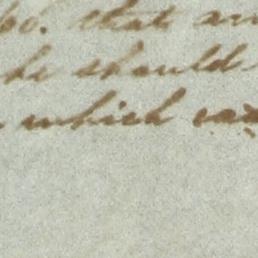 that an
he should
which